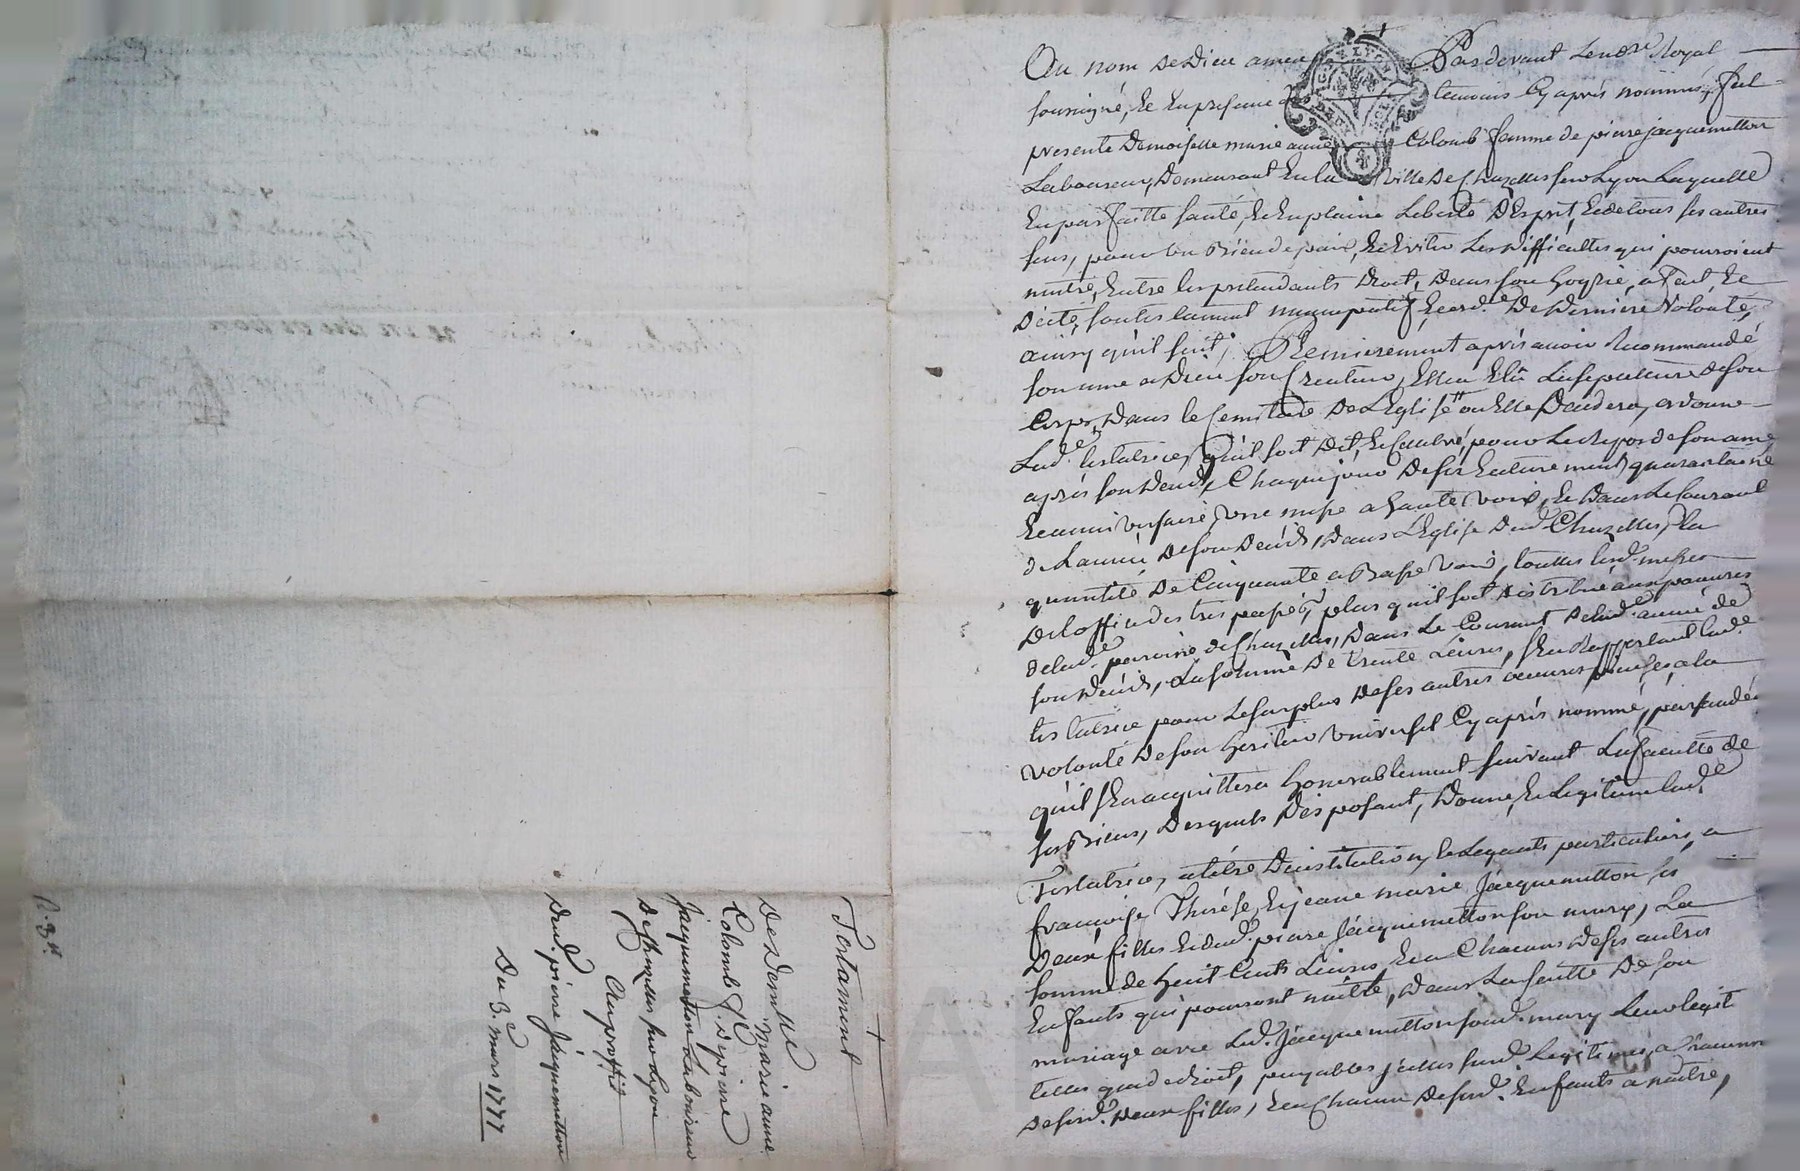 Au nom de Dieu amen Pardevant Le nore Royal
soussigné, Et En presence des temoins Cy après nommés, fut
presente Demoiselle marie anne Colomb femme de pierre jacquemetton
Laboureur, Demeurant En la ville De Chazelles sur Lyon Laquelle
En parfaitte santé, Et En plaine Liberté D'Esprit, Et de tous ses autres
sens, pour un Bien de paix, Et Eviter Les Difficultes qui pourroient
naitre, Entre les pretendants Droit, Dans son hoyrie, a fait, Et
Dicté, son testament nuncupatif, Et ord.e De Derniere Volonté,
ainsy qu'il suit; Premierement après avoir Recommandé
son ame a Dieu son Createur, Elle a Elû La sepulture de son
Corps, Dans le Cemitiere De L'Eglise ou Elle Decedera, ordonne
Lad.e testatrice, qu'il soit Dit, Et Celebré, pour Le Repos de son ame
après son Decès, Chaque jour De ses Enterrement, quarantaine
Et anniversaire, une messe a haute voix, Et Dans Le Courant
de L'année De son Decès, Dans L'Eglise Dud. Chazelles, La
quantité De Cinquante a Basse voix, touttes lesd. messes
De L'office des trepassés, plus qu'il soit Distribué aux pauvres
de lad.e paroisse de Chazelles, Dans Le Courant De lad.e année de
son Decès, La somme De trente Livres, s'En Rapportant Lad.e
testatrice pour Le surplus De ses autres oeuvres pieuses a la
volonté De son heritier universel Cy après nommé, persuadée
qu'il s'En acquittera honnorablement suivant La faculté de
ses Biens, Desquels Disposant, Donne, Et Legitime Lad.e
Testatrice, a titre D'institution, Et Legats particuliers, a
françoise Thérése, Et jeanne marie Jacquemetton ses
Deux filles Et dud. pierre Jacquemetton son mary, La
somme de huit Cents Livres, Et a Chacuns De ses autres
Enfants qui pourront naitre, Dans La suitte De son
mariage avec Led. Jacquemetton sond. mary Leur legit
telles que de droit, payables jcelles susd. Legitimes, a Chacune
De sesd. Deux filles, Et a Chacun De sesd. Enfants a naitre,
Testament
De Demlle Marie anne
Colomb f. de pierre
Jacquemetton Laboureur
De Chazelles sur Lyon
Au proffit
Dud. pierre Jacquemetton
Du 3.e mars 1777